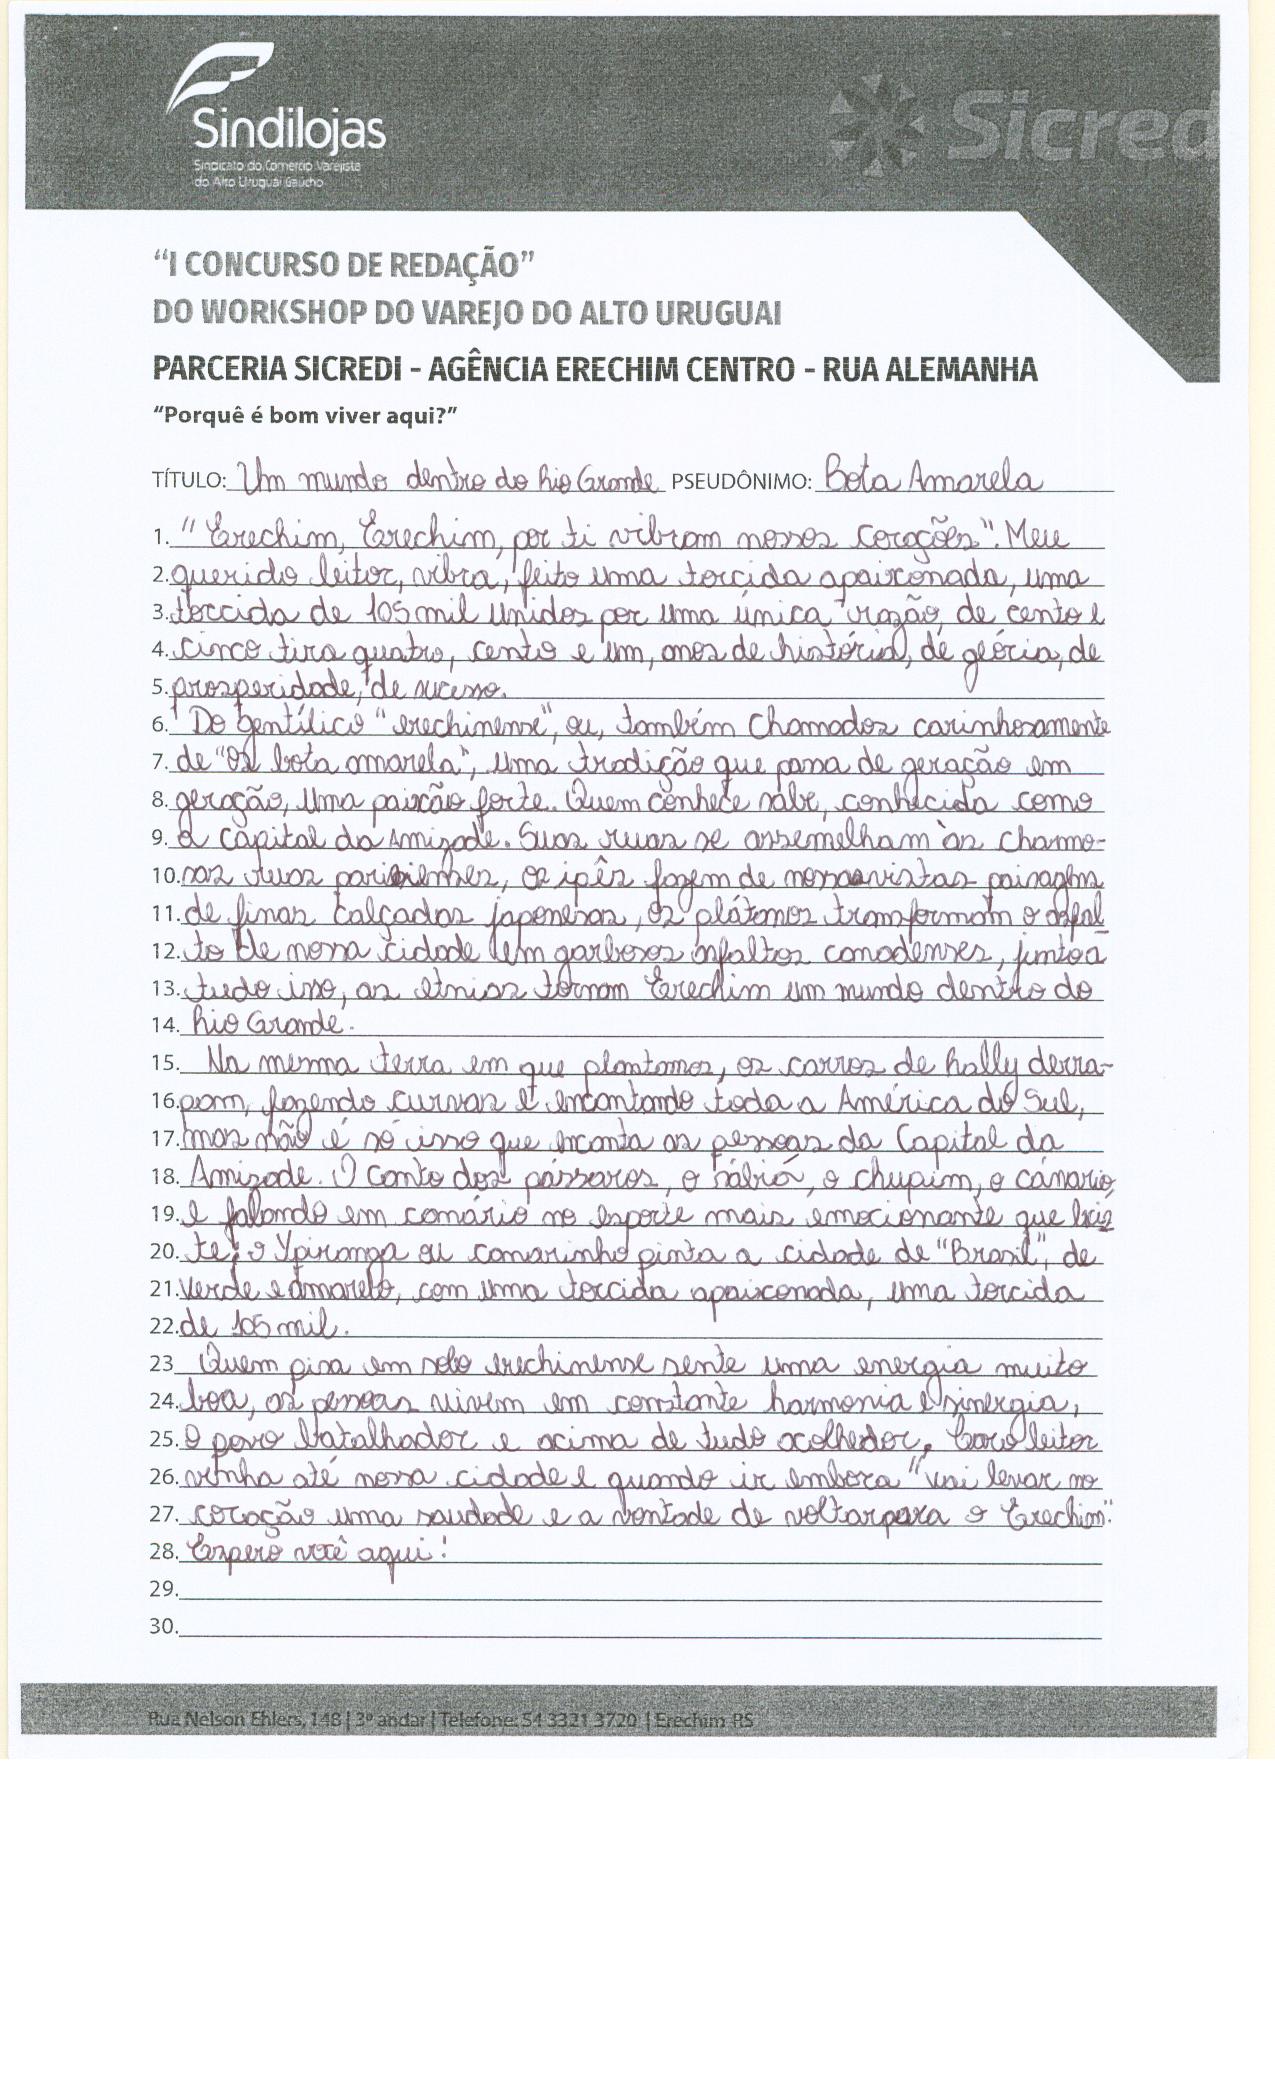 Sindilojas
Sindicato do Comércio Varejista
do Alto Uruguai Gaúcho
Sicred
"I CONCURSO DE REDAÇÃO"
DO WORKSHOP DO VAREJO DO ALTO URUGUAI
PARCERIA SICREDI - AGÊNCIA ERECHIM CENTRO - RUA ALEMANHA
"Porquê é bom viver aqui?"
TÍTULO: Um mundo dentro do Rio Grande PSEUDÔNIMO: Bota Amarela
1. "Erechim, Erechim, por ti vibram nossos corações". Meu
2. querido leitor, vibra, feito uma torcida apaixonada, uma
3. torcida de 105 mil unidos por uma única razão, de cento e
4. cinco tira quatro, cento e um, anos de história, de glória, de
5. prosperidade, de sucesso.
6. Do gentílico "erechinense", ou, também chamados carinhosamente
7. de "Os bota amarela", uma tradição que passa de geração em
8. geração, uma paixão forte. Quem conhece sabe, conhecida como
9. a capital da Amizade. Suas ruas se assemelham às charmo-
10. sas ruas parisienses, os ipês fazem de nossas vistas paisagens
11. de finas calçadas japonesas, os plátanos transformam o asfal
12. to de nossa cidade em garbosos asfaltos canadenses, junto a
13. tudo isso, as etnias tornam Erechim um mundo dentro do
14. Rio Grande.
15. Na mesma terra em que plantamos, os carros de Rally derra-
16. pam, fazendo curvas e encantando toda a América do Sul,
17. mas não é só isso que encanta as pessoas da Capital da
18. Amizade. O canto dos pássaros, o sábiá, o chupim, o cánario,
19. e falando em canário no esporte mais emocionante que exis
20. te; o Ypiranga ou canarinho pinta a cidade de "Brasil", de
21. verde e amarelo, com uma torcida apaixonada, uma torcida
22. de 105 mil.
23 Quem pisa em solo erechinense sente uma energia muito
24. boa, as pessoas vivem em constante harmonia e sinergia,
25. O povo batalhador e acima de tudo acolhedor, Caro leitor
26. venha até nossa cidade e quando ir embora "vai levar no
27. coração uma saudade e a vontade de voltar para o Erechim".
28. Espero você aqui!
29.
30.
Rua Nelson Ehlers, 148 | 3º andar | Telefone: 54 3321 3720 | Erechim RS